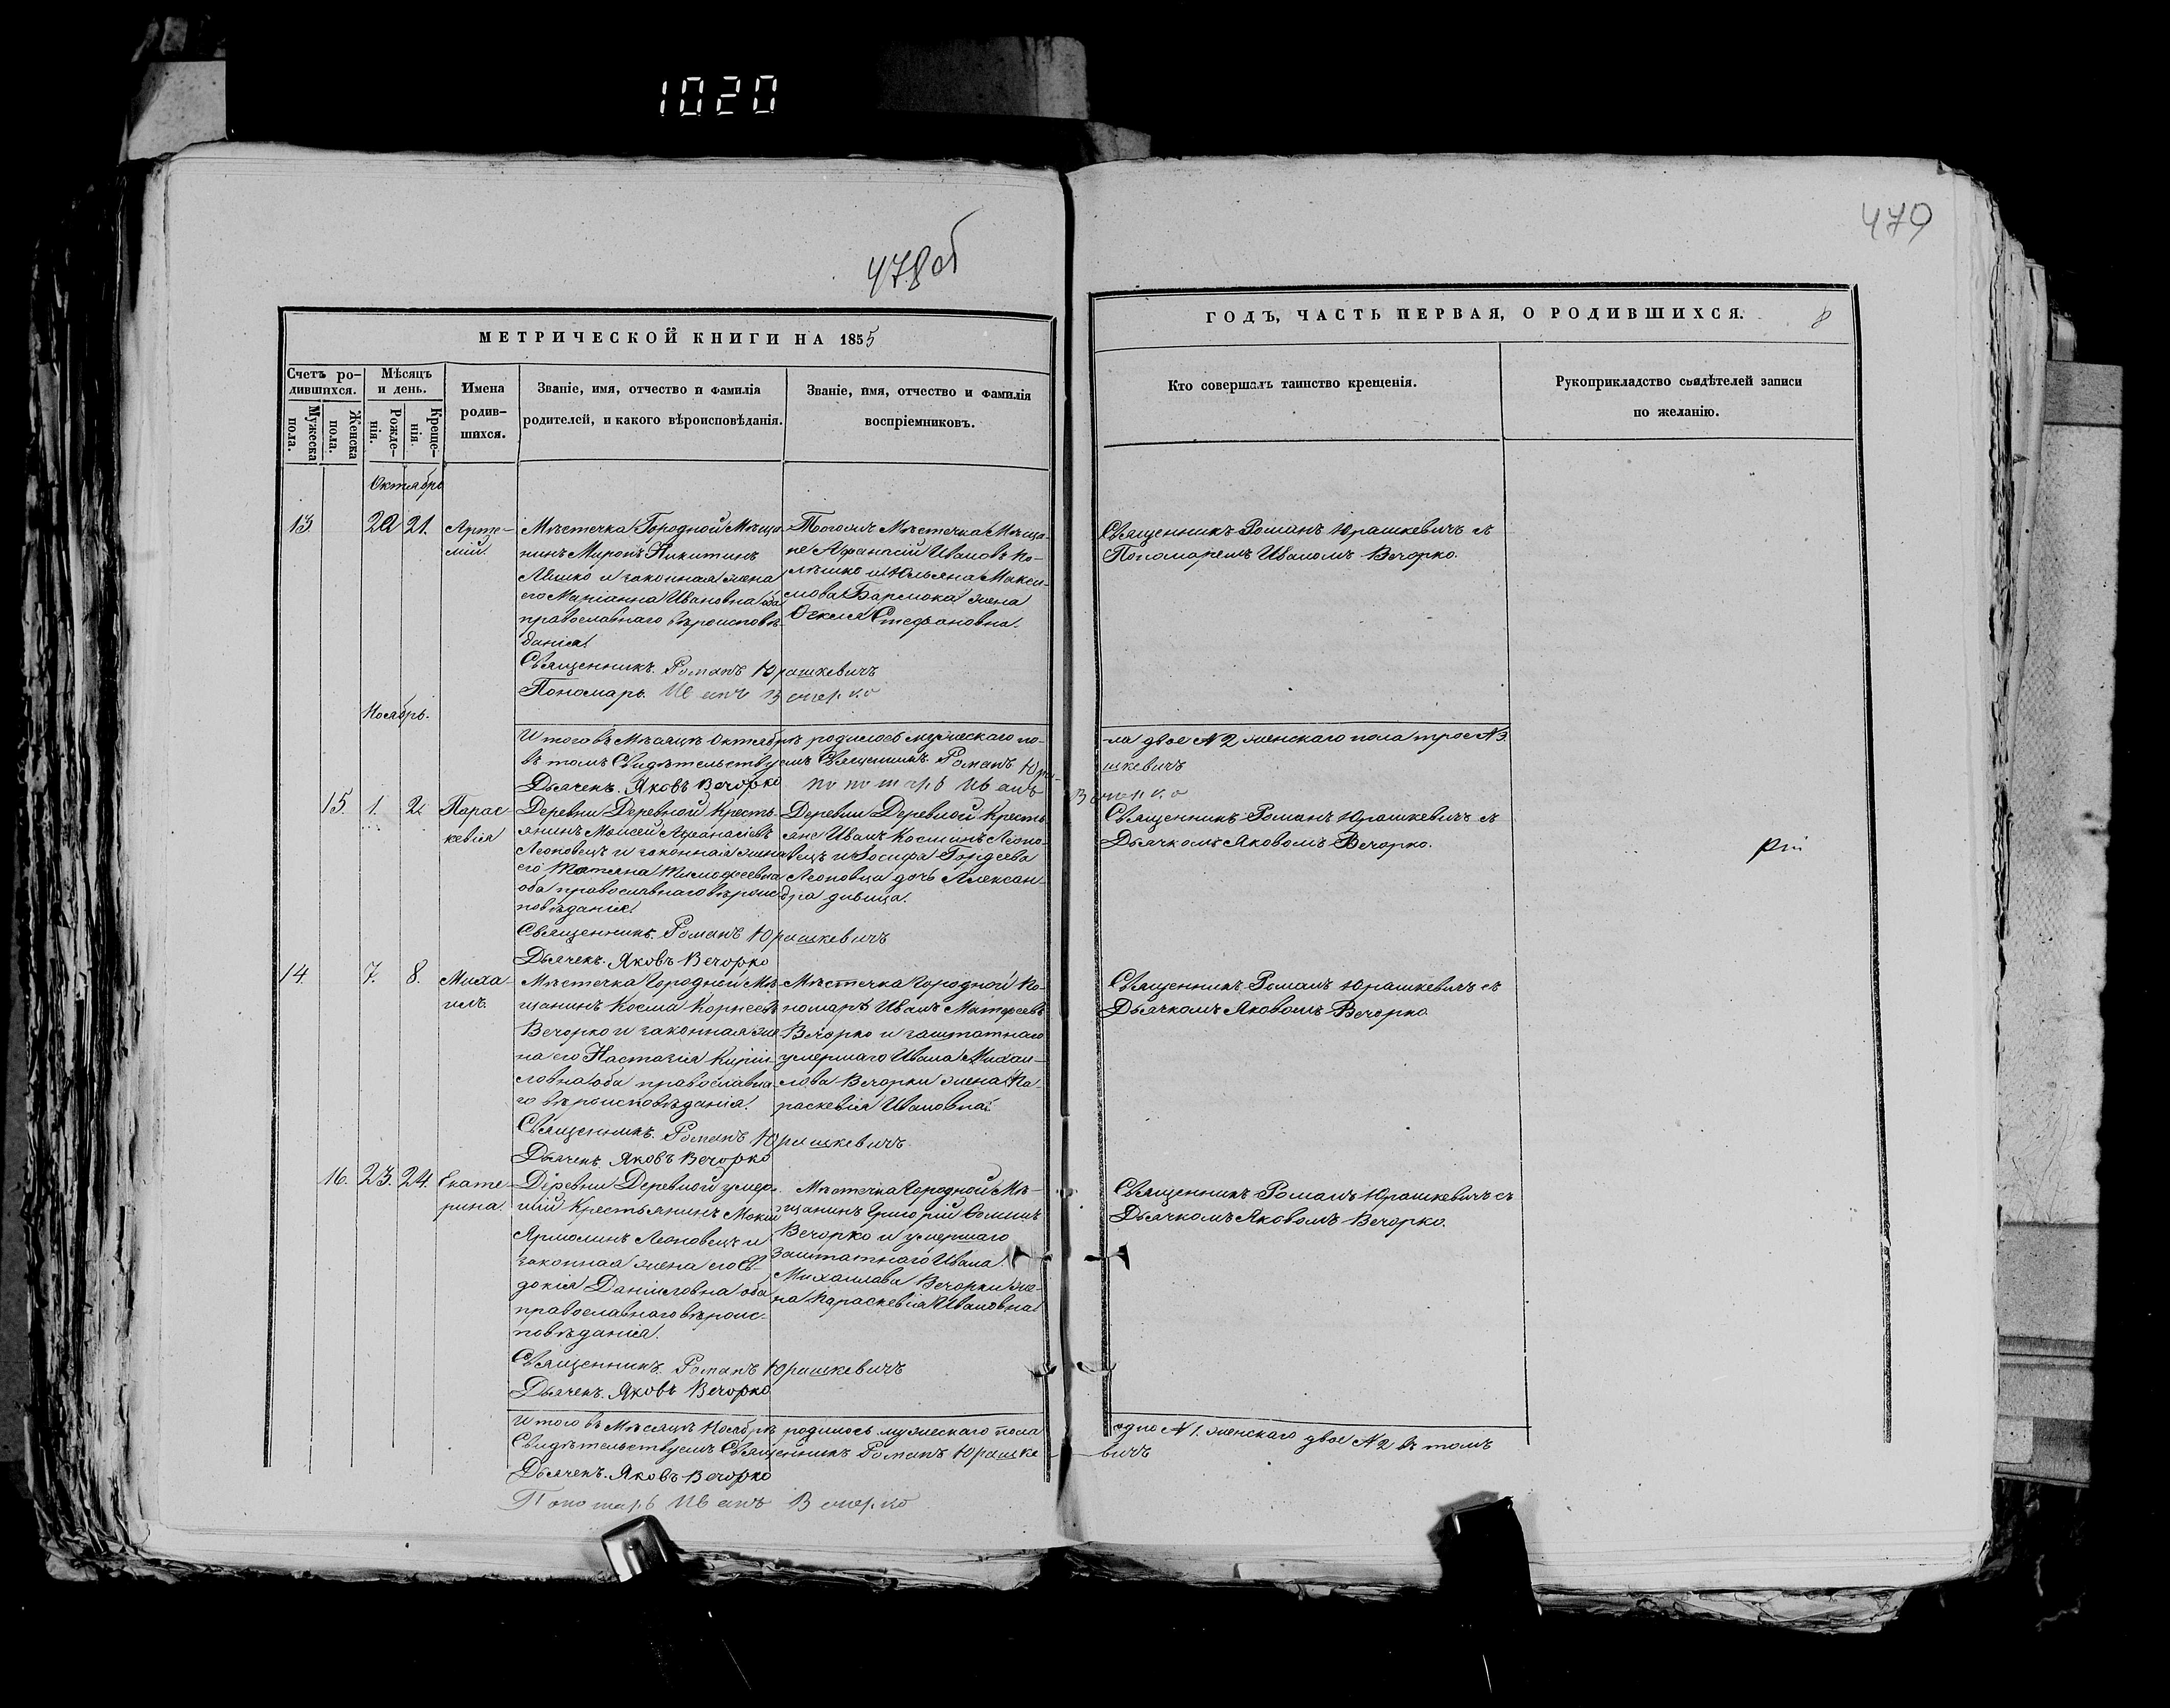 1020
478об
479
МЕТРИЧЕСКОЙ КНИГИ НА 1855
ГОДЪ, ЧАСТЬ ПЕРВАЯ, О РОДИВШИХСЯ.
8
Счетъ ро-
дившихся.
Мужеска
пола.
Женска
пола.
Мѣсяцъ
и день.
Рожде-
нія.
Креще-
нія.
Имена
родив-
шихся.
Званіе, имя, отчество и фамилія
родителей, и какого вѣроисповѣданія.
Званіе, имя, отчество и фамилія
воспріемниковъ.
Кто совершалъ таинство крещенія.
Рукоприкладство свидѣтелей записи
по желанію.
Октябрь
13
20 21.
Арте-
мій.
Мѣстечка Городной Мѣща-
нинъ Миронъ Никитинъ
Лешко и законная жена
его Маріанна Ивановна оба
православнаго вѣроисповѣ-
данія.
Священникъ Романъ Юрашкевичъ
Пономарь Иванъ Вечорко
Тогожъ Мѣстечка Мѣща-
не Афанасій Ивановъ По-
лешко и Юльяна Макси-
мова Бармока жена
Стефановна.
Священникъ Романъ Юрашкевичъ съ
Пономаремъ Иваномъ Вечорко.
Ноябрь.
Итого въ Мѣсяцѣ Октябрѣ родилось мужескаго по-
ла двое N 2 женскаго пола трое N 3.
въ томъ Свидѣтельствуемъ Священникъ Романъ Юра-
шкевичъ
Дьячекъ Яковъ Вечорко пономарь Иванъ
Вечорко
15. 1. 2
Парас-
кевія
Деревни Деревной Кресть-
янинъ Моисей Афанасіевъ
Леоновецъ и законная жена
его Татьяна Тимофеевна
оба православнаго вѣроис-
повѣданія.
Священникъ Романъ Юрашкевичъ
Дьячекъ Яковъ Вечорко
Деревни Деревной Кресть-
яне Иванъ Косминъ Леоно-
вецъ и Іосифа Гордеева
Леоновца дочь Алексан-
дра дивица.
Священникъ Романъ Юрашкевичъ съ
Дьячкомъ Яковомъ Вечорко.
14. 7. 8.
Миха-
илъ.
Мѣстечка Городной Мѣ-
щанинъ Косма Корнеевъ
Вечорко и законная же-
на его Настазія Кирил-
ловна оба православна-
го вѣроисповѣданія.
Священникъ Романъ Юрашкевичъ
Дьячекъ Яковъ Вечорко
Мѣстечка Городной По-
номарь Иванъ Матфеевъ
Вечорко и заштатнаго
умершаго Ивана Михаи-
лова Вечорки жена Па-
раскевія Ивановна
Священникъ Романъ Юрашкевичъ съ
Дьячкомъ Яковомъ Вечорко
16. 23. 24.
Екате-
рина.
Деревни Деревной умер-
шій Крестьянинъ Мокій
Ярмолинъ Леоновецъ и
законная жена его Ев-
докія Даниловна оба
православнаго вѣроис-
повѣданія.
Священникъ Романъ Юрашкевичъ
Дьячекъ Яковъ Вечорко
Мѣстечка Городной Мѣ-
щанинъ Григорій Ѳоминъ
Вечорко и умершаго
Заштатнаго Ивана
Михаилава Вечорки же-
на Параскевія Ивановна
Священникъ Романъ Юрашкевичъ съ
Дьячкомъ Яковомъ Вечорко.
Итого въ Мѣсяцѣ Ноябрѣ родилось мужескаго пола
одно N 1. женскаго двое N 2 въ томъ
Свидѣтельствуемъ Священникъ Романъ Юрашке-
вичъ
Дьячекъ Яковъ Вечорко
Пономарь Иванъ Вечорко